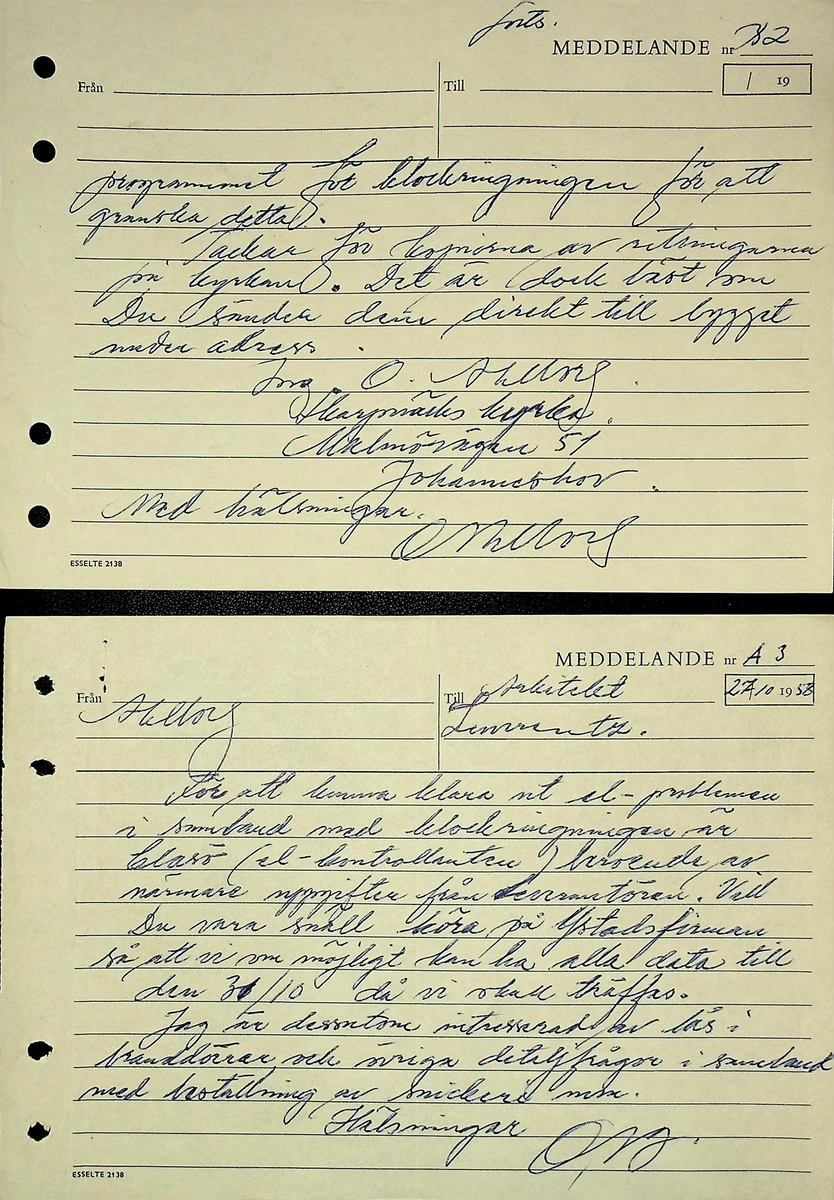 forts.
MEDDELANDE nr 2
Från
Till
/ 19
programmet för klockringningen för att
granska detta.
Tackar för kopiorna av ritningarna
på kyrkan. Det är dock bäst om
Du sänder dem direkt till bygget
under adress.
Ing. O. Ahlborg.
Skarpnäcks kyrka.
Malmövägen 51
Johanneshov.
Med hälsningar.
O Ahlborg
ESSELTE 2138
MEDDELANDE nr A 3
Från
Till Arkitekt
27/10 1958
Ahlborg
Lewerentz.
För att kunna klara ut el-problemen
i samband med klockringningen är
(el-kontrollanten) beroende av
närmare uppgifter från leverantören. Vill
Du vara snäll höra på Ystadsfirman
så att vi om möjligt kan ha alla data till
den 30/10 då vi skall träffas.
Jag är dessutom intresserad av lås i
branddörrar och övriga detaljfrågor i samband
med beställning av snickeri mm.
Hälsningar
ESSELTE 2138